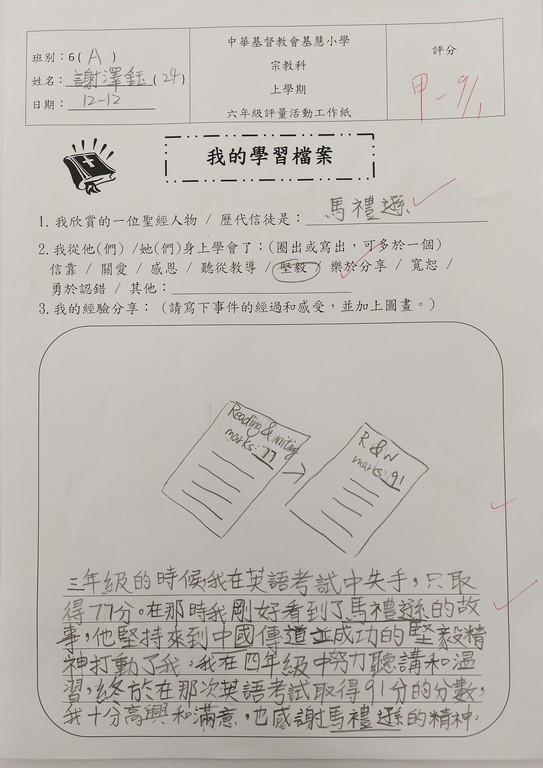 班別：6( A )
姓名：謝澤鈺(24)
日期：12-12
中華基督教會基慧小學
宗教科
上學期
六年級評量活動工作紙
評分
甲-
我的學習檔案
1. 我欣賞的一位聖經人物 / 歷代信徒是：馬禮遜
2. 我從他(們) /她(們)身上學會了：(圈出或寫出，可多於一個)
信靠 / 關愛 / 感恩 / 聽從教導 / 堅毅 / 樂於分享 / 寬恕 /
勇於認錯 / 其他：
3. 我的經驗分享：（請寫下事件的經過和感受，並加上圖畫。）
Reading & writing
marks: 77
R & W
marks: 91
三年級的時候，我在英語考試中失手，只取
得77分。在那時我剛好看到了馬禮遜的故
事，他堅持來到中國傳道並成功的堅毅精
神打動了我，我在四年級中努力聽講和溫
習，終於在那次英語考試取得91分的分數，
我十分高興和滿意，也感謝馬禮遜的精神。